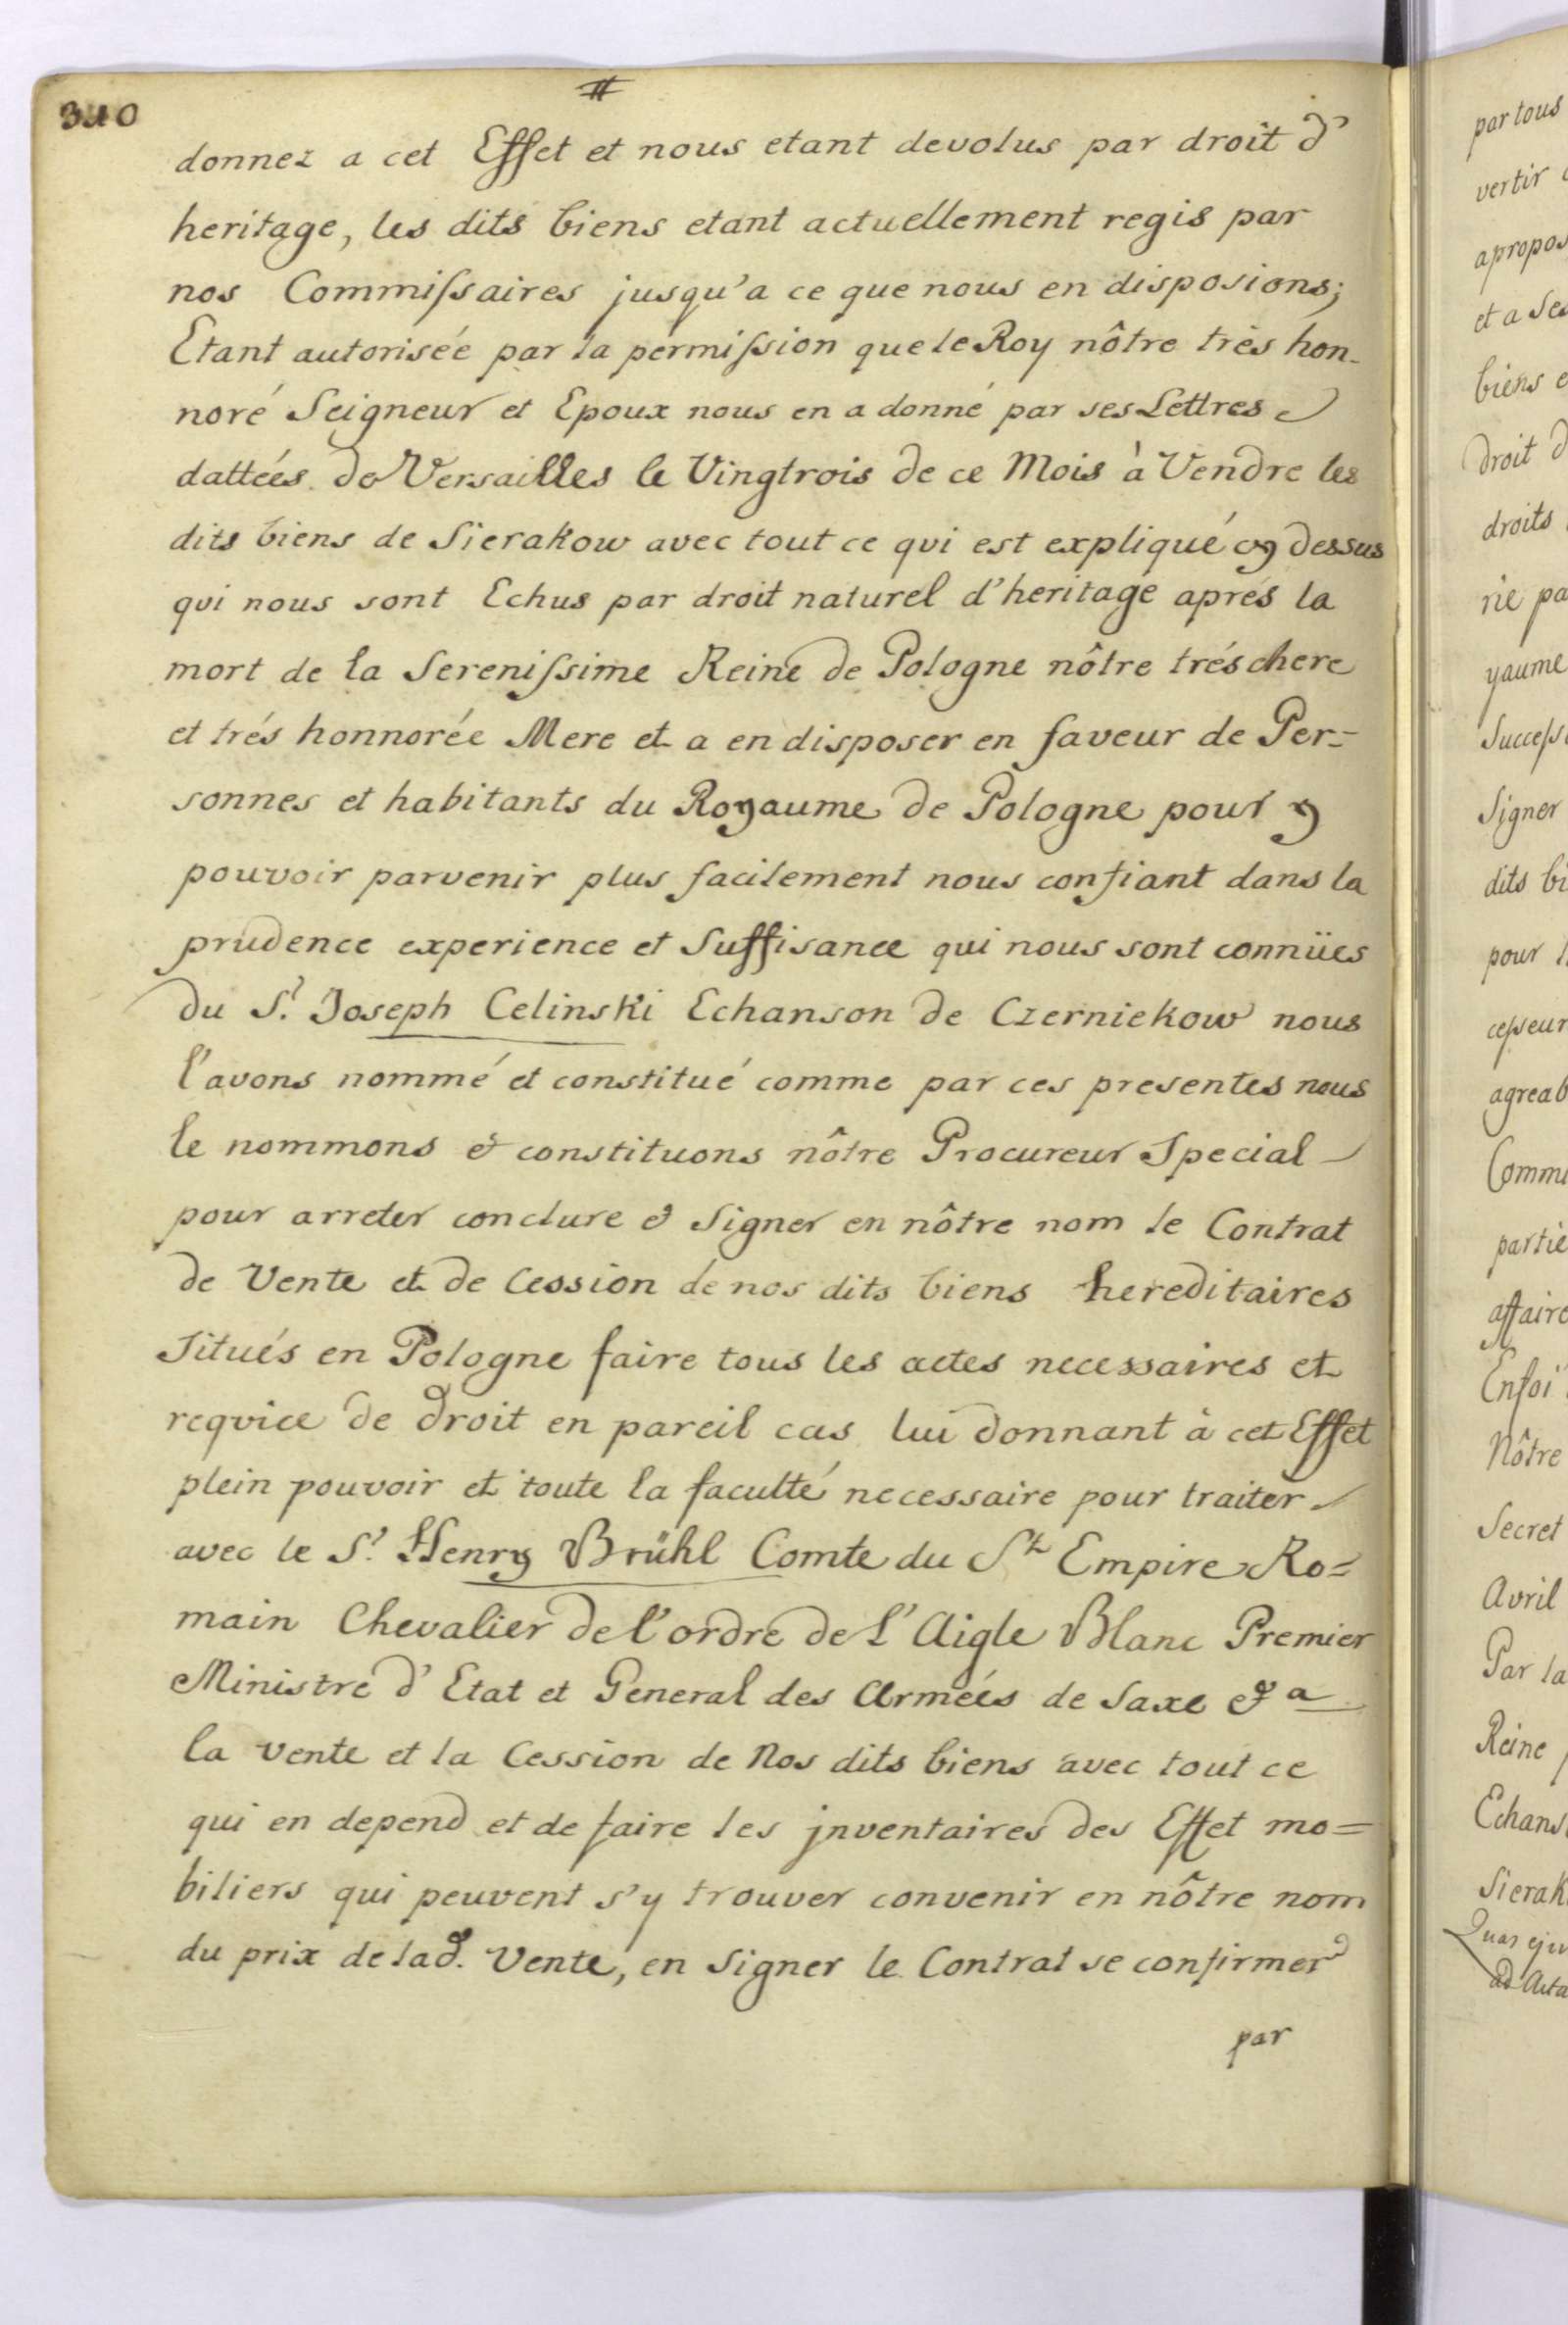 340
#
donnez a cet Effet et nous etant devolus par droit d'
heritage, les dits biens etant actuellement regis par
nos Commiſsaires jusqu'a ce que nous en disposions;
Etant autorisée par la permiſsion que le Roy nôtre très hon-
noré Seigneur et Epoux nous en a donné par ses Lettres
dattées de Versailles le Vingtrois de ce Mois à Vendre les
dits biens de Sierakow avec tout ce qui est expliqué cy dessus
qui nous sont Echus par droit naturel d'heritage aprés la
mort de la Sereniſsime Reine de Pologne nôtre trés chere
et trés honnorée Mere et a en disposer en faveur de Per=
sonnes et habitants du Royaume de Pologne pour y
pouvoir parvenir plus facilement nous confiant dans la
prudence experience et Suffisance qui nous sont connües
du Sr. Joseph Celinski Echanson de Czerniekow nous
l'avons nommé et constitué comme par ces presentes nous
le nommons & constituons nôtre Procureur Special
pour arreter conclure & Signer en nôtre nom le Contrat
de Vente et de Cession de nos dits biens hereditaires
Situés en Pologne faire tous les actes necessaires et
reqvice de droit en pareil cas lui donnant à cet Effet
plein pouvoir et toute la faculté necessaire pour traiter
avec le Sr. Henry Brühl Comte du St Empire Ro=
main Chevalier de l'ordre de L'Aigle Blanc Premier
Ministre d'Etat et General des Armées de Saxe & a
la vente et la Cession de Nos dits biens avec tout ce
qui en depend et de faire les jnventaires des Effet mo=
biliers qui peuvent s'y trouver convenir en nôtre nom
du prix de lad. Vente, en Signer le Contrat se confirmer
par
par tous
vertir
apropos
et a Ses
biens e
droit d
droits
rie pa
yaume
Succeſs
Signer
dits bi
pour l
ceſseur
agreab
Comm
partie
affaire
Enfoi
Nôtre
Secret
Avril
Par la
Reine
Echans
Sierak
Quas eju
ad Acta